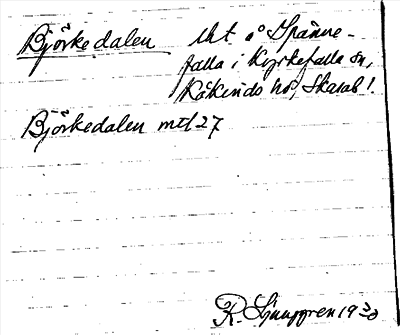 Björkedalen lht å Spänne-
falla i Kyrkefalla sn,
Kåkinds hd, Skarab l.
Björkedalen mtl 27
R. Ljunggren 1930